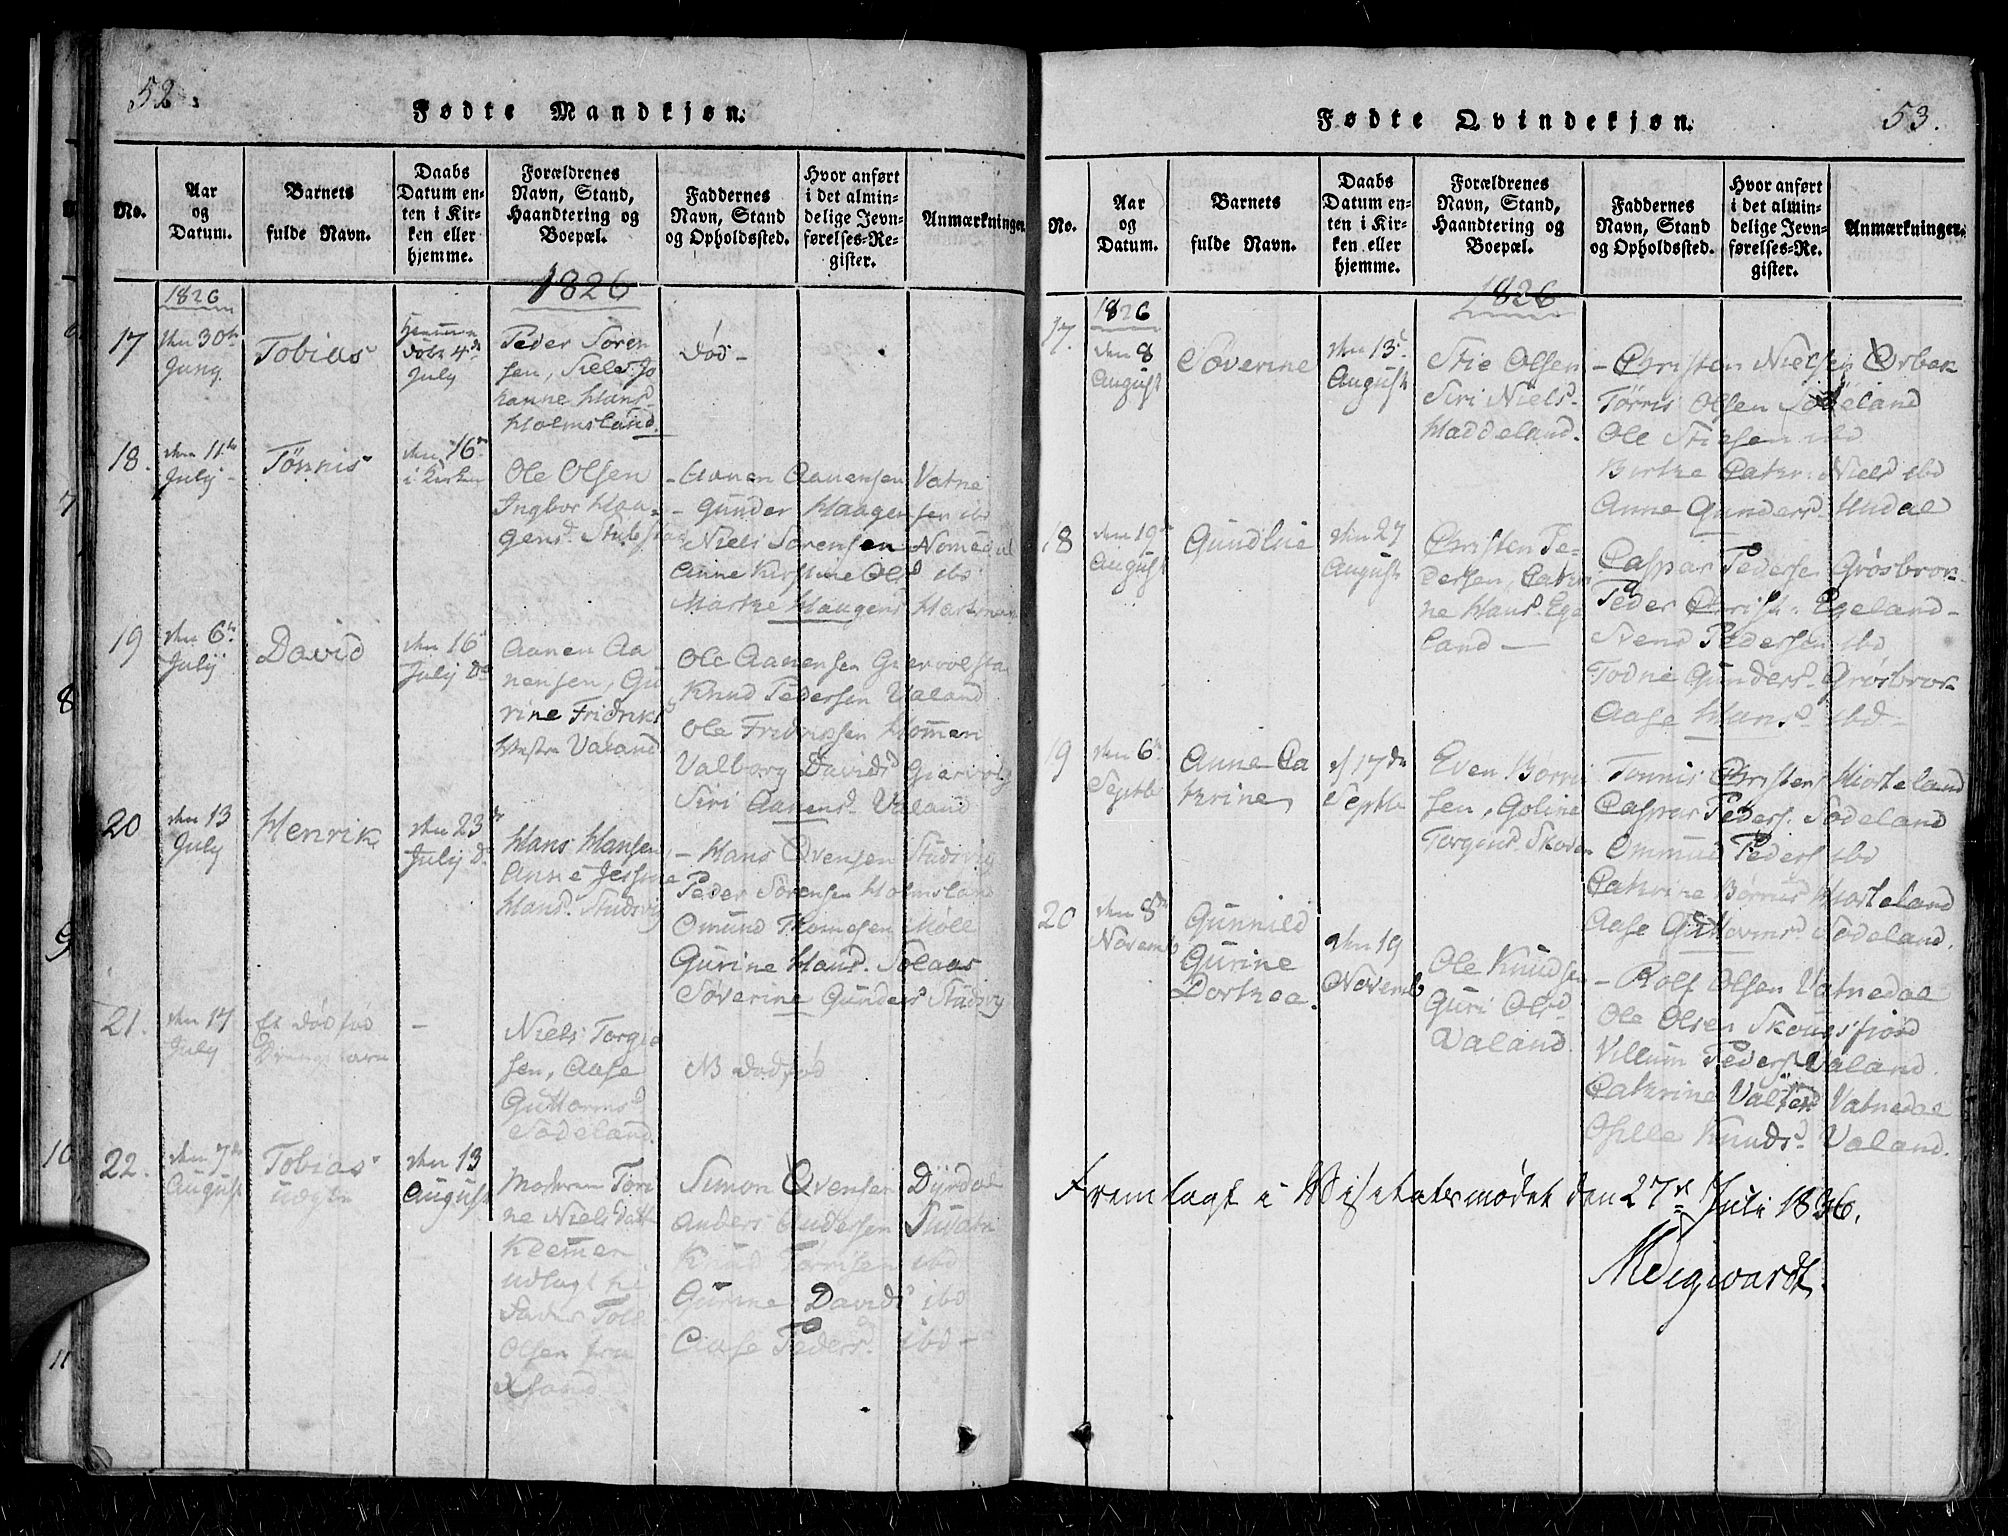 52.
Fødte Mandkjøn.
No.
Aar
og
Datum.
Barnets
fulde Navn.
Daabs
Datum en-
ten i Kir-
ken eller
hjemme.
Forældrenes
Navn, Stand,
Haandtering og
Boepæl.
Faddernes
Navn, Stand
og Opholdssted.
Hvor anført
i det almin-
delige Jevn-
førelses-Re-
gister.
Anmærkninger.
1826
1826
17
den 30te
Juny.
Tobias
Hjemme
døbt 4de
July
Peder Søren
sen,
hanne Hans
Holmsland.
død -
18.
den 11te
July -
Tønnis
den 16
i Kirken
Ole Olsen
Ingbor Haa-
gensd.
- Aanen Aanensen Vatne
- Gunder Haagensen ibd
Niels Sørensen Nomedal
Anne Kirstine Olsd ibd
Marthe Haagens
19
den 6te
July
David
den 16
July do
Aanen Aa
nensen, Gu
rine Fridriks
Valand
Ole Aanensen
Knud Pedersen Valand
Ole Fridrissen Hommen
Valborg Davidsd
Siri Aanensd. Valand
20
den 13
July
Henrik
den 23de
July do
Hans Hansen
Anne Jessine
Hansd. Studsvig
- Hans Ovensen Studsvig
Peder Sørensen Holmsland
Omund Thomesen Møll
Gurine Hansd. Solaas
Søverine Gunders Studsvig
21.
den 17
July
Et dødfød
Drengebarn
-
Niels Torgi
sen, Aase
Guttormsd
Sødeland
NB dødfød
22.
den 7de
August
Tobias
uægte
den 13
August
Moderen Tori
ne Nielsdatt
Klemmer
udlagt til
Fader Tol
Olsen fra
Xsand
Simon Ovensen Dyrdal
Anders Andersen
Knud Torrisen ibd
Gurine Davids ibd
Aase Peders. ibd -
53.
Fødte Qvindekjøn.
No.
Aar
og
Datum.
Barnets
fulde Navn.
Daabs
Datum en-
ten i Kir-
ken eller
hjemme.
Forældrenes
Navn, Stand,
Haandtering og
Boepæl.
Faddernes
Navn, Stand
og Opholdssted.
Hvor anført
i det almin-
delige Jevn-
førelses-Re-
gister.
Anmærkninger.
1826
1826
17.
den 8
August
Søverine
den 13
August
Stie Olsen
Siri Niels-
Haddeland.
- Christen Nielsen
Tørris Olsen Sødeland
Ole Stiesen ibd
Birthe Cathr. Niels ibd
Anne Gundersd.
18
den 19
August
Gundlie
den 27
August
Christen Pe-
dersen, Cathri
ne Hans Ege
land -
Caspar Pedersen
Peder Christ. Egeland -
Svend Pedersen ibd
Todne Gunders.
Aase Hansd ibd -
19
den 6te
Septb
Anne Ca
thrine
d 17de
Septb
Even Børri
sen, Goline
Torgiuls
Tønnis Christens Horteland
Caspar Peders. Sødeland
Ommund Peders ibd
Cathrine Børrisd Horteland
Aase Guttormsd. Sødeland.
20
den 8de
Novemb
Gunnild
Gurine
Dorthea.
den 19
Novemb
Ole Knudsen
Guri Olsd
Valand
- Rolf Olsen Vatnedal
Ole Olsen Skougsfjord
Villum Peders Valand
Cathrine Vatnedal
Osille Knudsd. Valand.
Fremlagt i Visitatsmødet den 27de Juli 1836.